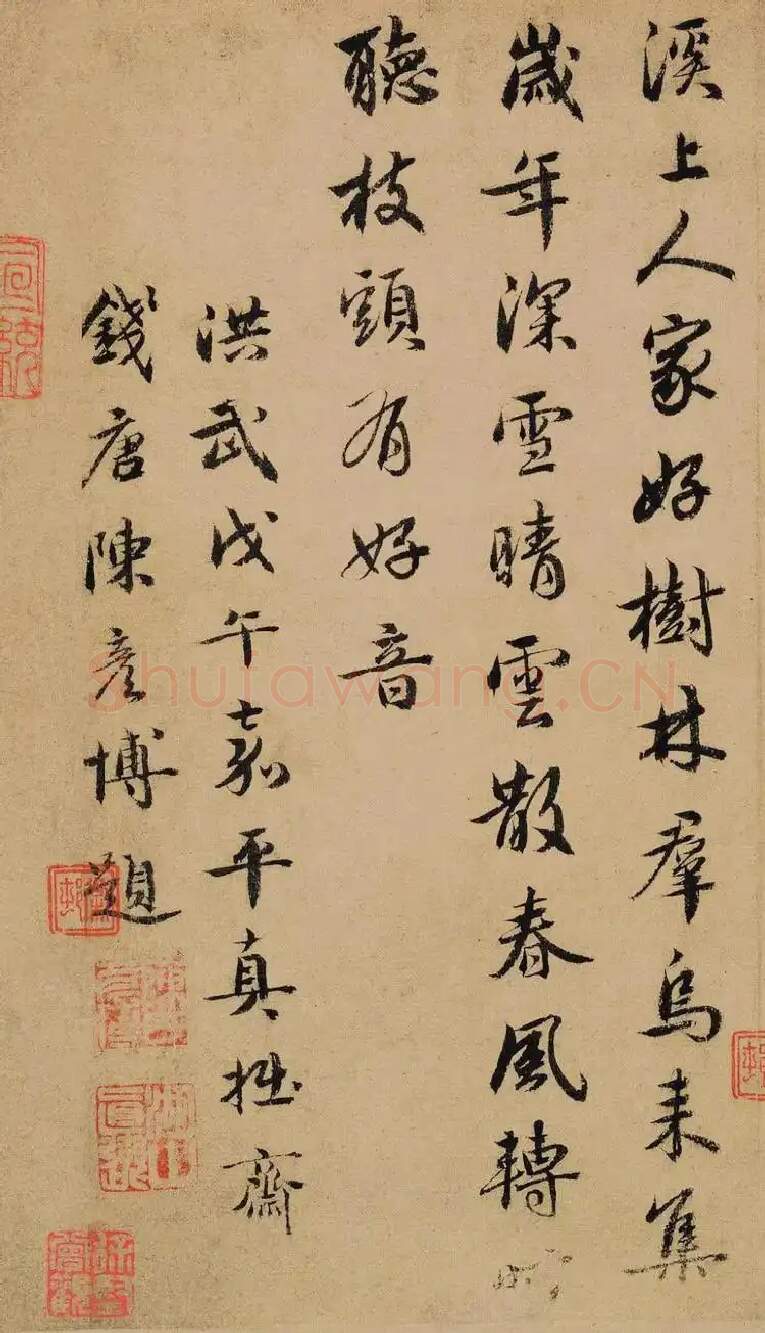 溪上人家好樹林羣烏来集
歲年深雪晴雲散春風轉
聽枝頭有好音
洪武戊午嘉平真拙齋
錢唐陳彥博題
Shufawang.CN